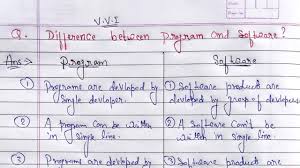 V.V.I
Q. Difference between Program and Software?
Ans → Program Software
① Programs are devloped by
single devloper.
① Software products are
devloped by group of devlopers
② A program can be written
in single line.
② A Software can't be
written in single line.
③ Programs are devloped by
③ Software products are